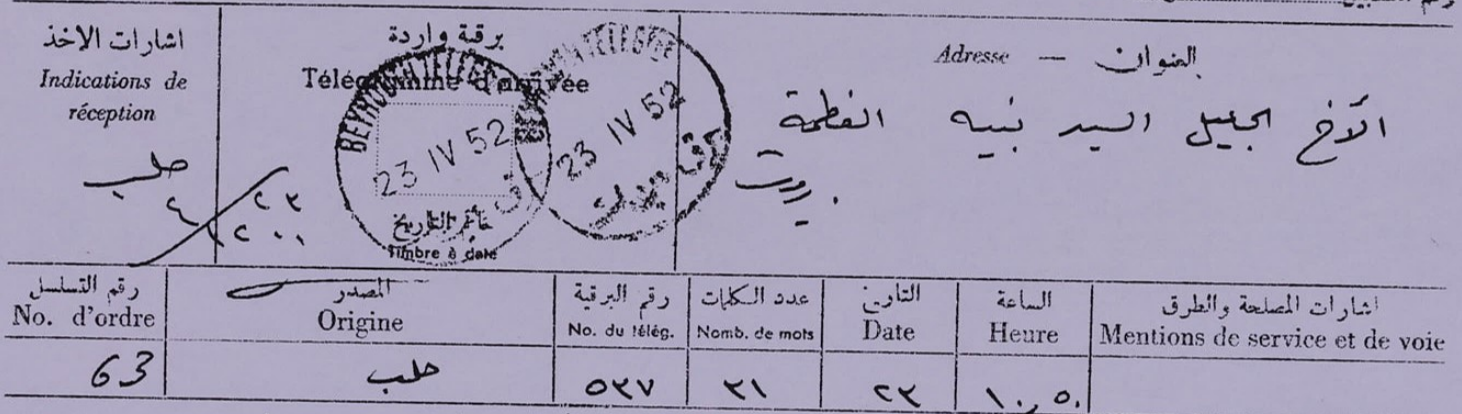 اشارات الاخذ
Indications de
réception
حلب
٢٣
برقية واردة
Télégramme d'arrivée
BEYROUTH
23 IV 52
خاتم التاريخ
Timbre à date
23 IV 52
العنوان — Adresse
الأخ الجليل السيد نبيه العظمة
بيروت
رقم التسلسل
No. d'ordre
63
المصدر
Origine
حلب
رقم البرقية
No. du télég.
٥٢٧
عدد الكلمات
Nomb. de mots
٢١
التاريخ
Date
٢٣
الساعة
Heure
١٠,٥٠
اشارات المصلحة والطرق
Mentions de service et de voie